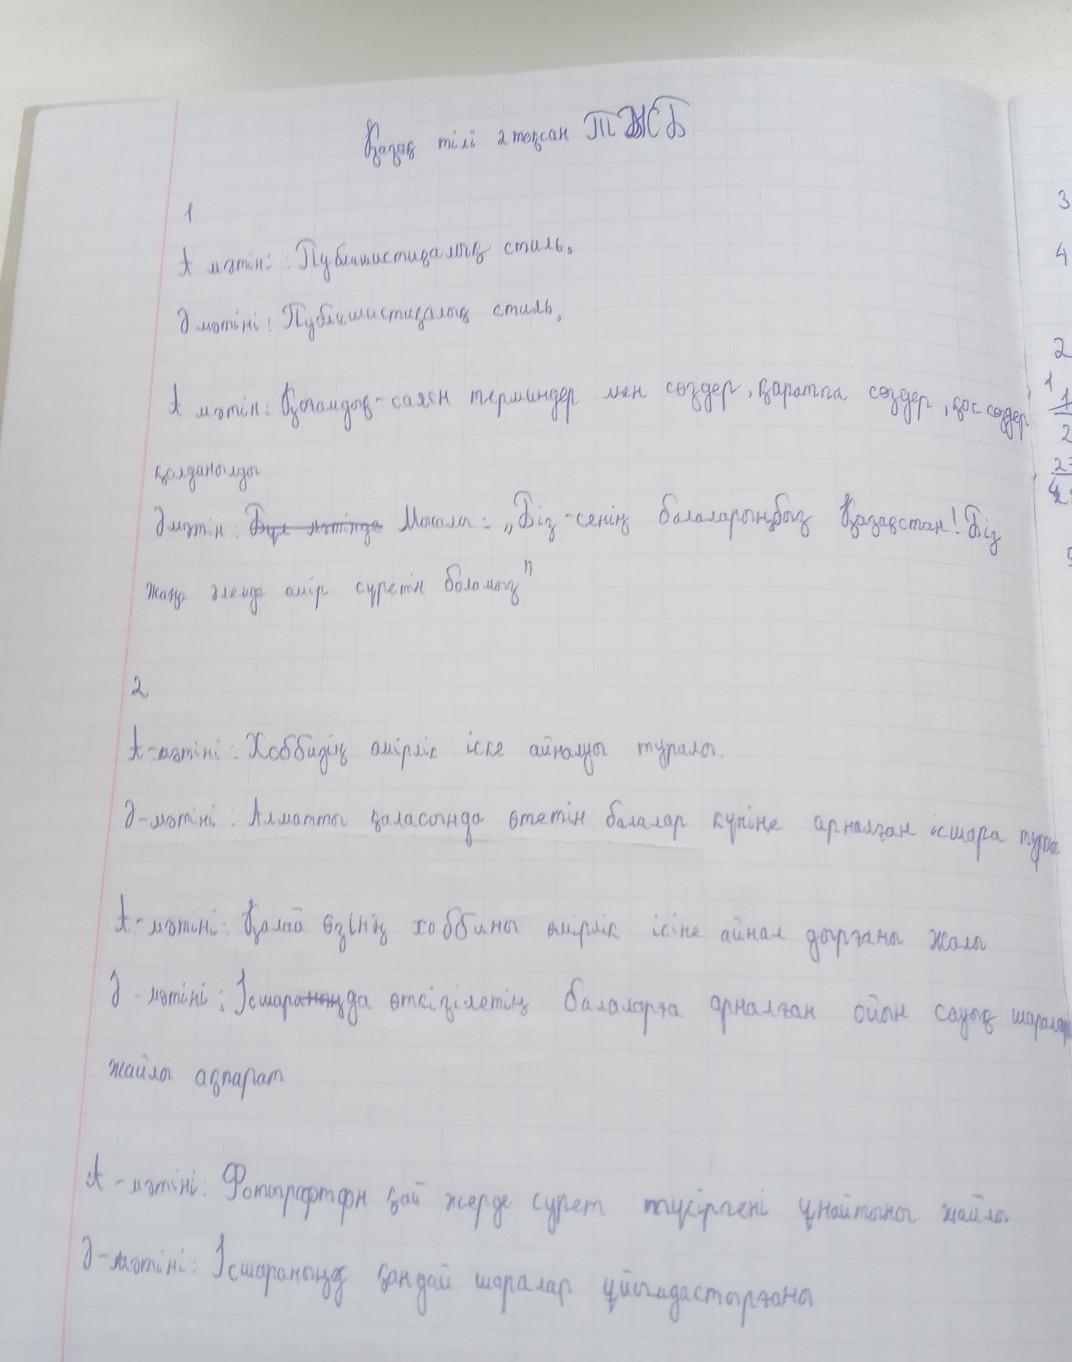 Қазақ тілі 2 тоқсан ТЖБ
1
А мәтіні: Публишистиқалық стиль.
Ә мәтіні: Публишистиқалық стиль.
А мәтін: Қоғамдық-саяси терминдер мен сөздер, қаратпа сөздер, қос сөздер
қолданылды
Ә мәтін: Мысалы: „Біз-сенің балаларыңбыз Қазақстан! Біз
жаңа әлемде өмір сүретін боламыз"
2
А-мәтіні: Хоббидің өмірлік іске айналуы туралы.
Ә-мәтіні: Алматты қаласында өтетін балалар күніне арналған ісшара
А-мәтіні: Қалай өзінің хоббины өмірлік ісіне айнал дырғаны жалы
Ә-мәтіні: Ісшарада өткізілетің балаларға арналған ойын сауық шаралар
жайлы ақпарат
А-мәтіні: қай жерде сурет түсіргені ұнайтыны жайлы
Ә-мәтіні: қандай шаралар ұйымдастырғаны
3
4
2
1
2